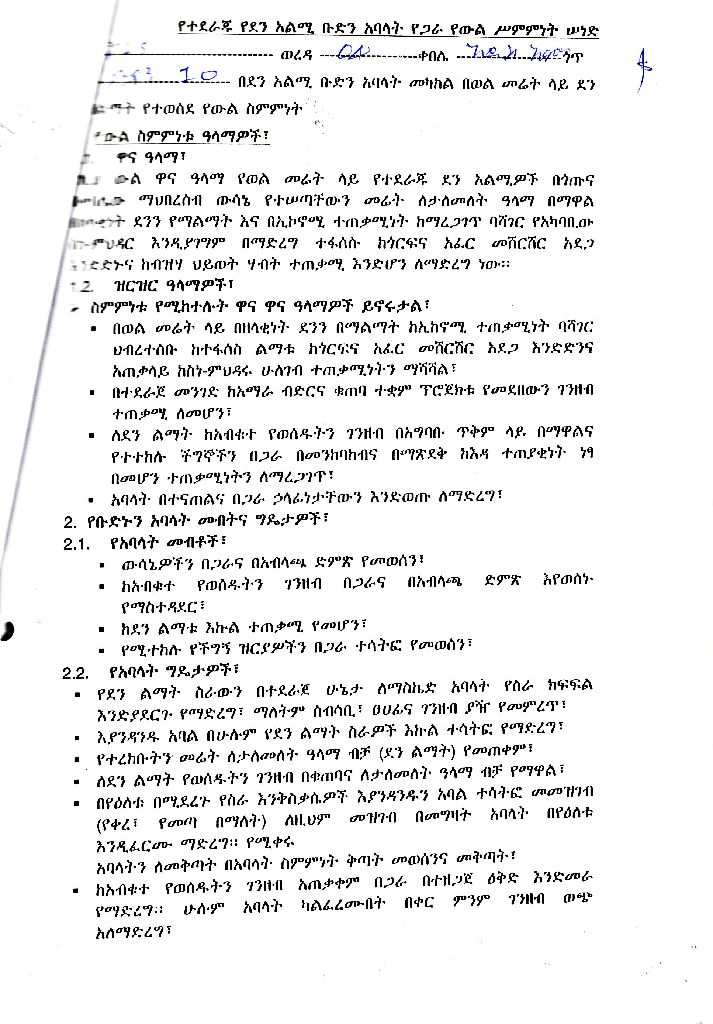 የተደራጁ የደን አልሚ ቡድን አባላት የጋራ የውል ሥምምነት ሠነድ
ወረዳ ቀበሌ ጎጥ
10 በደን አልሚ ቡድን አባላት መካከል በወል መሬት ላይ ደን
የተወሰደ የውል ስምምነት
ውል ስምምነቱ ዓላማዎች፣
ዋና ዓላማ፣
ውል ዋና ዓላማ የወል መሬት ላይ የተደራጁ ደን አልሚዎች በጎጡና
ማህበረሰብ ውሳኔ የተሠጣቸውን መሬት ለታለመለት ዓላማ በማዋል
ደንን የማልማት እና በኢኮኖሚ ተጠቃሚነት ከማረጋገጥ ባሻገር የአካባቢው
ምህዳር እንዲያገግም በማድረግ ተፋሰሱ ከጎርፍና አፈር መሸርሸር አደጋ
እንድድኑና ከብዝሃ ህይወት ሃብት ተጠቃሚ እንድሆን ለማድረግ ነው።
1.2. ዝርዝር ዓላማዎች፣
ስምምነቱ የሚከተሉት ዋና ዋና ዓላማዎች ይኖሩታል፣
▪ በወል መሬት ላይ በዘላቂነት ደንን በማልማት ከኢከኖሚ ተጠቃሚነት ባሻገር
ህብረተሰቡ ከተፋሰስ ልማቱ ከጎርፍና አፈር መሸርሸር አደጋ እንድድንና
አጠቃላይ ከስነ-ምህዳሩ ሁለገብ ተጠቃሚነትን ማሻሻል፣
▪ በተደራጀ መንገድ ከአማራ ብድርና ቁጠባ ተቋም ፕሮጀክቱ የመደበውን ገንዘብ
ተጠቃሚ ለመሆን፣
▪ ለደን ልማት ከአብቁተ የወሰዱትን ገንዘብ በአግባቡ ጥቅም ላይ በማዋልና
የተተከሉ ችግኞችን በጋራ በመንከባከብና በማጽደቅ ከእዳ ተጠያቂነት ነፃ
በመሆን ተጠቃሚነትን ለማረጋገጥ፣
▪ አባላት በተናጠልና በጋራ ኃላፊነታቸውን እንድወጡ ለማድረግ፣
2. የቡድኑን አባላት መብትና ግዴታዎች፣
2.1. የአባላት መብቶች፣
▪ ውሳኔዎችን በጋራና በአብላጫ ድምጽ የመወሰን፣
▪ ከአብቁተ የወሰዱትን ገንዘብ በጋራና በአብላጫ ድምጽ እየወሰኑ
የማስተዳደር፣
▪ ከደን ልማቱ እኩል ተጠቃሚ የመሆን፣
▪ የሚተከሉ የችግኝ ዝርያዎችን በጋራ ተሳትፎ የመወሰን፣
2.2. የአባላት ግዴታዎች፣
▪ የደን ልማት ስራውን በተደራጀ ሁኔታ ለማስኬድ አባላት የስራ ክፍፍል
እንድያደርጉ የማድረግ፣ ማለትም ሰብሳቢ፣ ፀሀፊና ገንዘብ ያዥ የመምረጥ፣
▪ እያንዳንዱ አባል በሁሉም የደን ልማት ስራዎች እኩል ተሳትፎ የማድረግ፣
▪ የተረከቡትን መሬት ለታለመለት ዓላማ ብቻ (ደን ልማት) የመጠቀም፣
▪ ለደን ልማት የወሰዱትን ገንዘብ በቁጠባና ለታለመለት ዓላማ ብቻ የማዋል፣
▪ በየዕለቱ በሚደረጉ የስራ እንቅስቃሴዎች እያንዳንዱን አባል ተሳትፎ መመዝገብ
(የቀረ፣ የመጣ በማለት) ለዚህም መዝገብ በመግዛት አባላት በየዕለቱ
እንዲፈርሙ ማድረግ። የሚቀሩ
አባላትን ለመቅጣት በአባላት ስምምነት ቅጣት መወሰንና መቅጣት፣
▪ ከአብቁተ የወሰዱትን ገንዘብ አጠቃቀም በጋራ በተዘጋጀ ዕቅድ እንድመራ
የማድረግ። ሁሉም አባላት ካልፈረሙበት በቀር ምንም ገንዘብ ወጭ
አለማድረግ፣